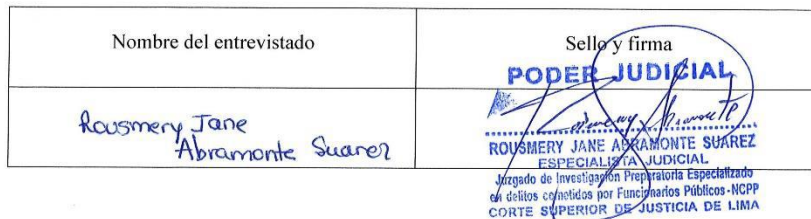 Nombre del entrevistado
Sello y firma
Rousmery Jane
Abramonte Suarez
PODER JUDICIAL
ROUSMERY JANE ABRAMONTE SUAREZ
ESPECIALISTA JUDICIAL
Juzgado de Investigación Preparatoria Especializado
en delitos cometidos por Funcionarios Públicos - NCPP
CORTE SUPERIOR DE JUSTICIA DE LIMA